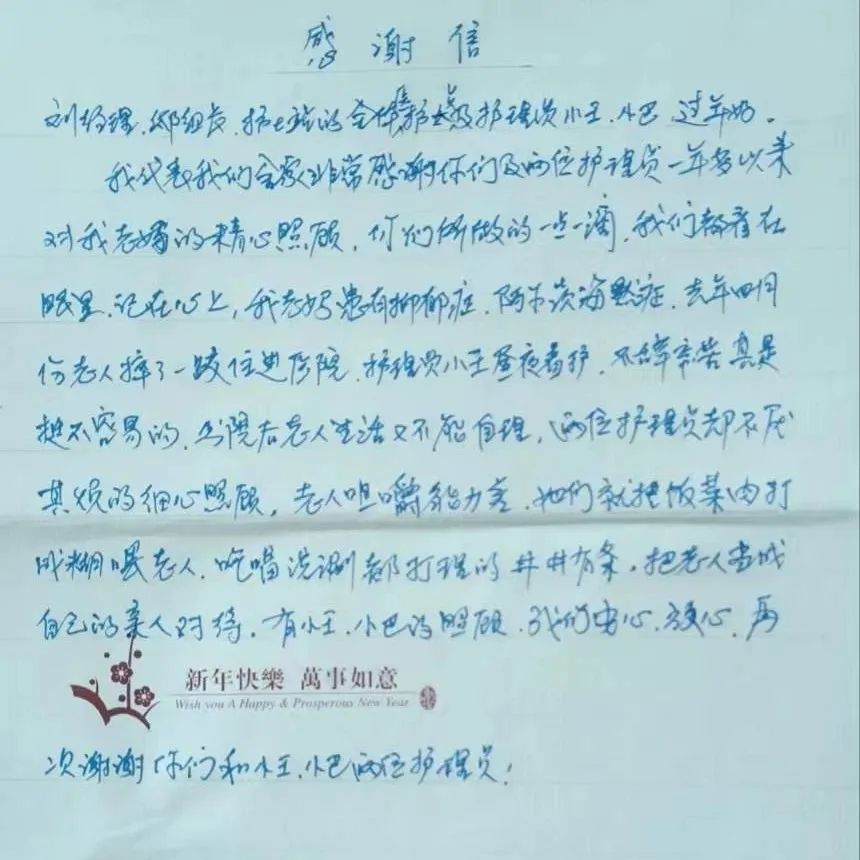 感谢信
刘经理、郑组长、护士站的全体护士及护理员小王、小巴过年好。
我代表我们全家非常感谢你们及两位护理员一年多以来
对我老妈的精心照顾，你们所做的一点一滴，我们都看在
眼里、记在心上，我老妈患有抑郁症、阿尔茨海默症，去年四月
份老人摔了一跤住进医院，护理员小王昼夜看护，不辞辛苦真是
挺不容易的，出院后老人生活又不能自理，两位护理员却不厌
其烦的细心照顾，老人咀嚼能力差，她们就把饭菜肉打
成糊喂老人，吃喝洗涮都打理的井井有条，把老人当成
自己的亲人对待，有小王、小巴的照顾，我们安心、放心，再
新年快樂 萬事如意
Wish you A Happy & Prosperous New Year
次谢谢你们和小王、小巴两位护理员！